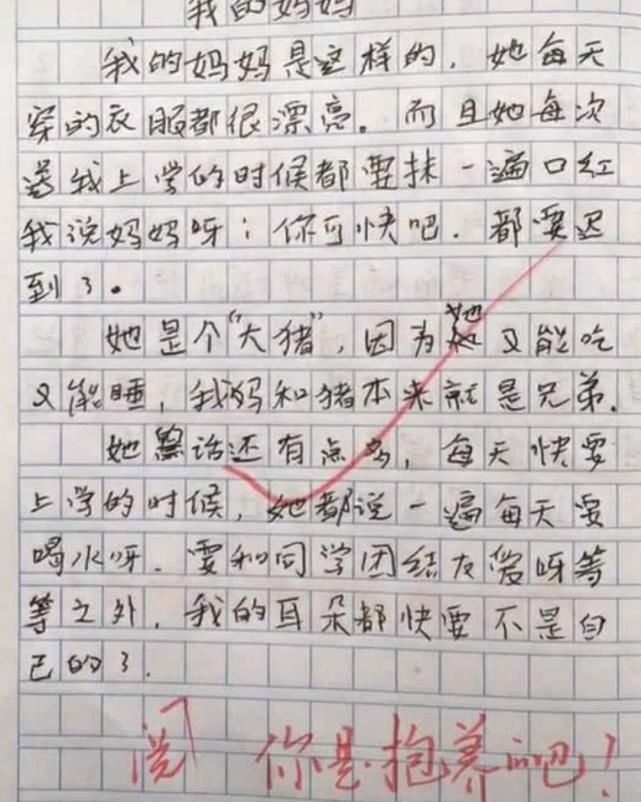 我的妈妈
我的妈妈是这样的，她每天
穿的衣服都很漂亮。而且她每次
送我上学的时候都要抹一遍口红
我说妈妈呀；你可快吧．都要迟
到了。
她是个“大猪”，因为她又能吃
又能睡，我妈和猪本来就是兄弟．
她话还有点多，每天快要
上学的时候，她都说一遍每天要
喝水呀．要和同学团结友爱呀等
等之外，我的耳朵都快要不是自
己的了．
阅 你是抱养的吧！